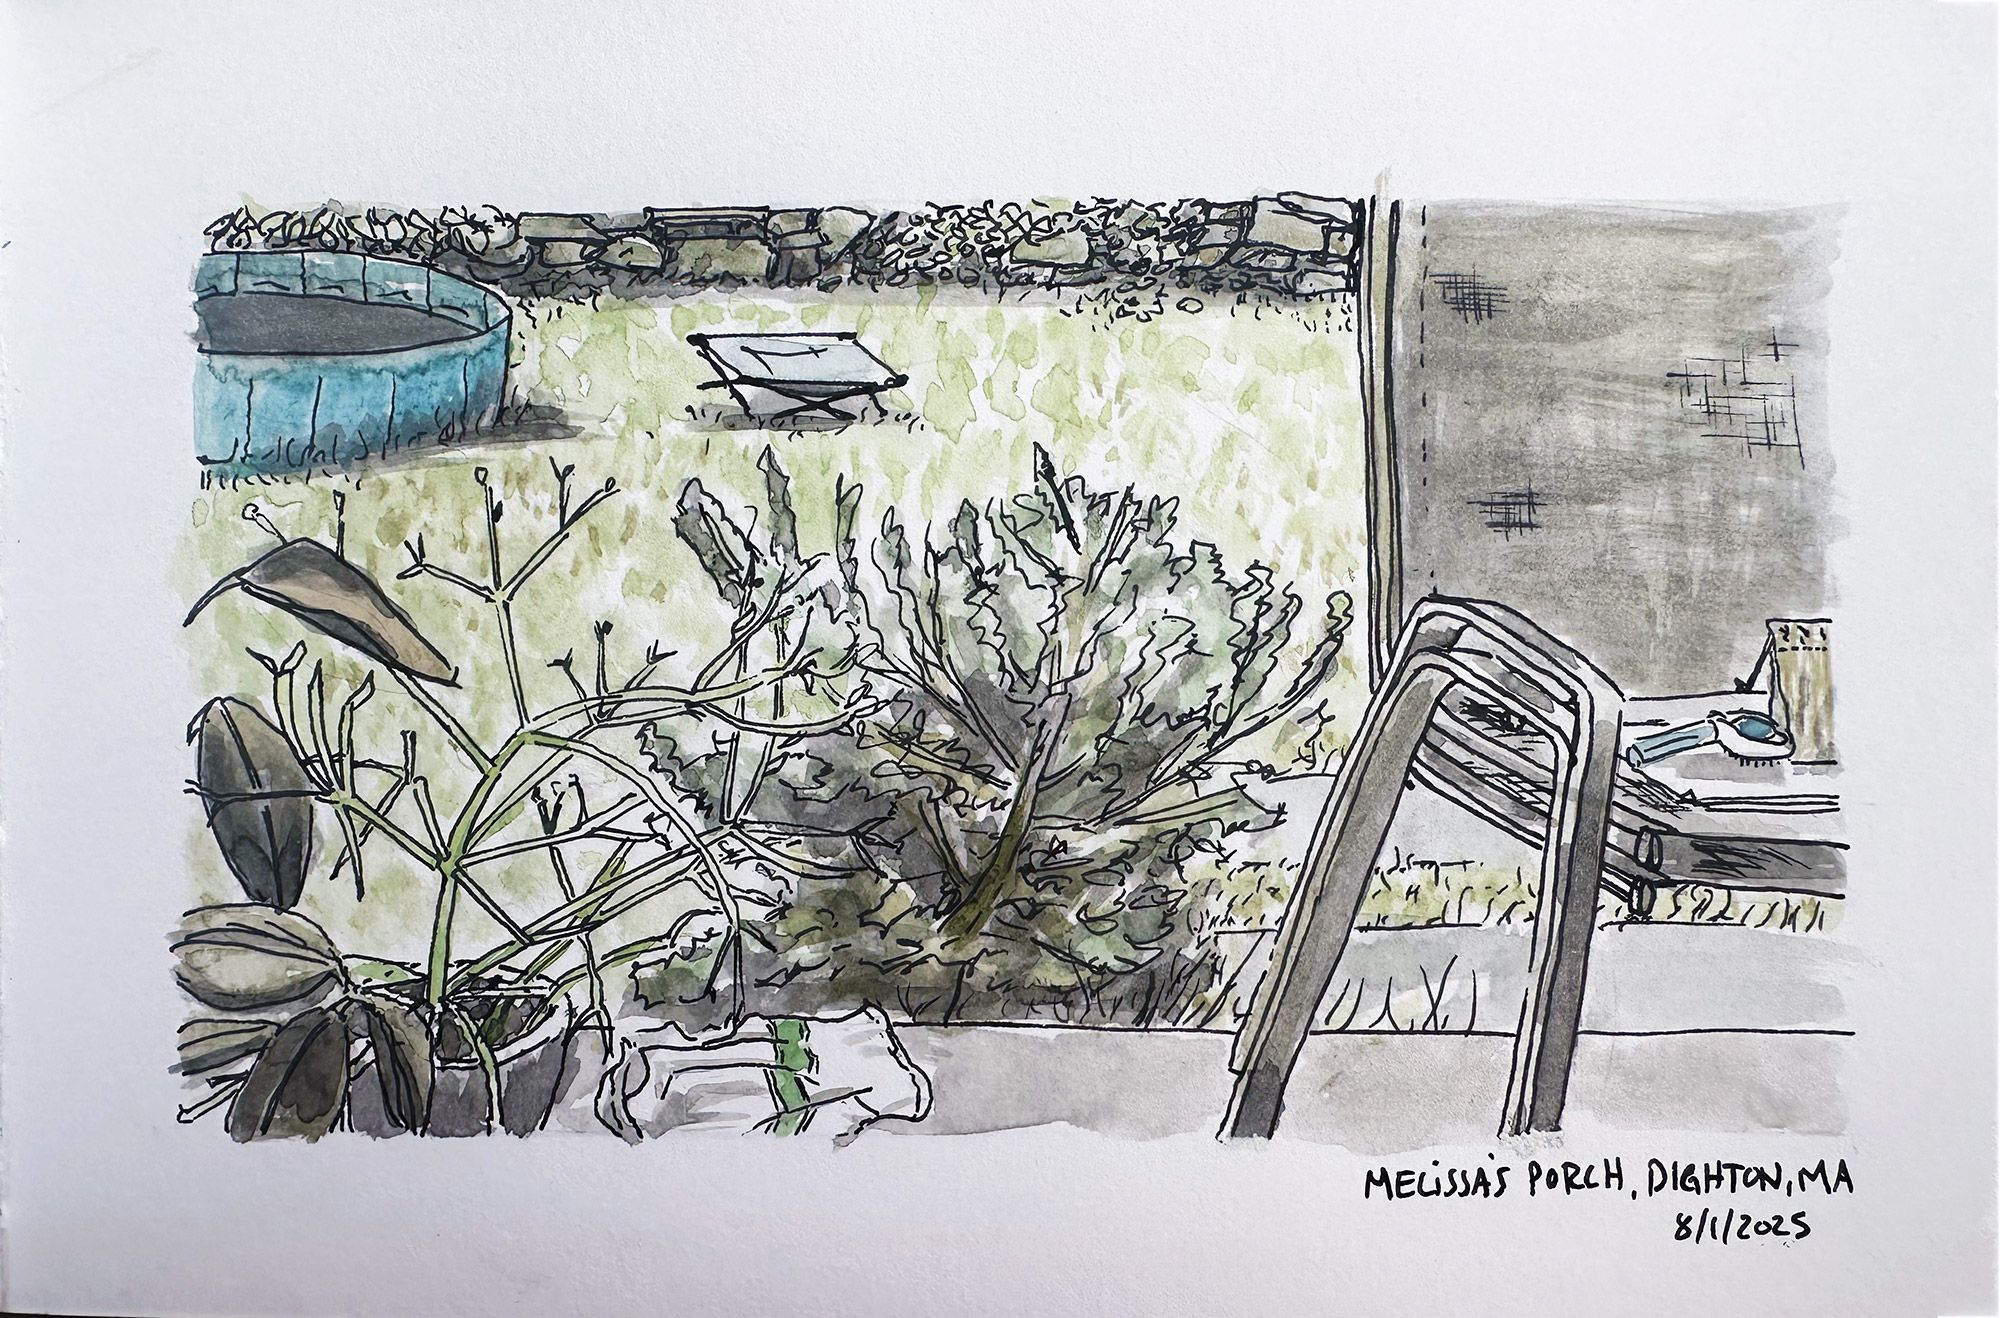 MELISSA'S PORCH, DIGHTON, MA
8/1/2025